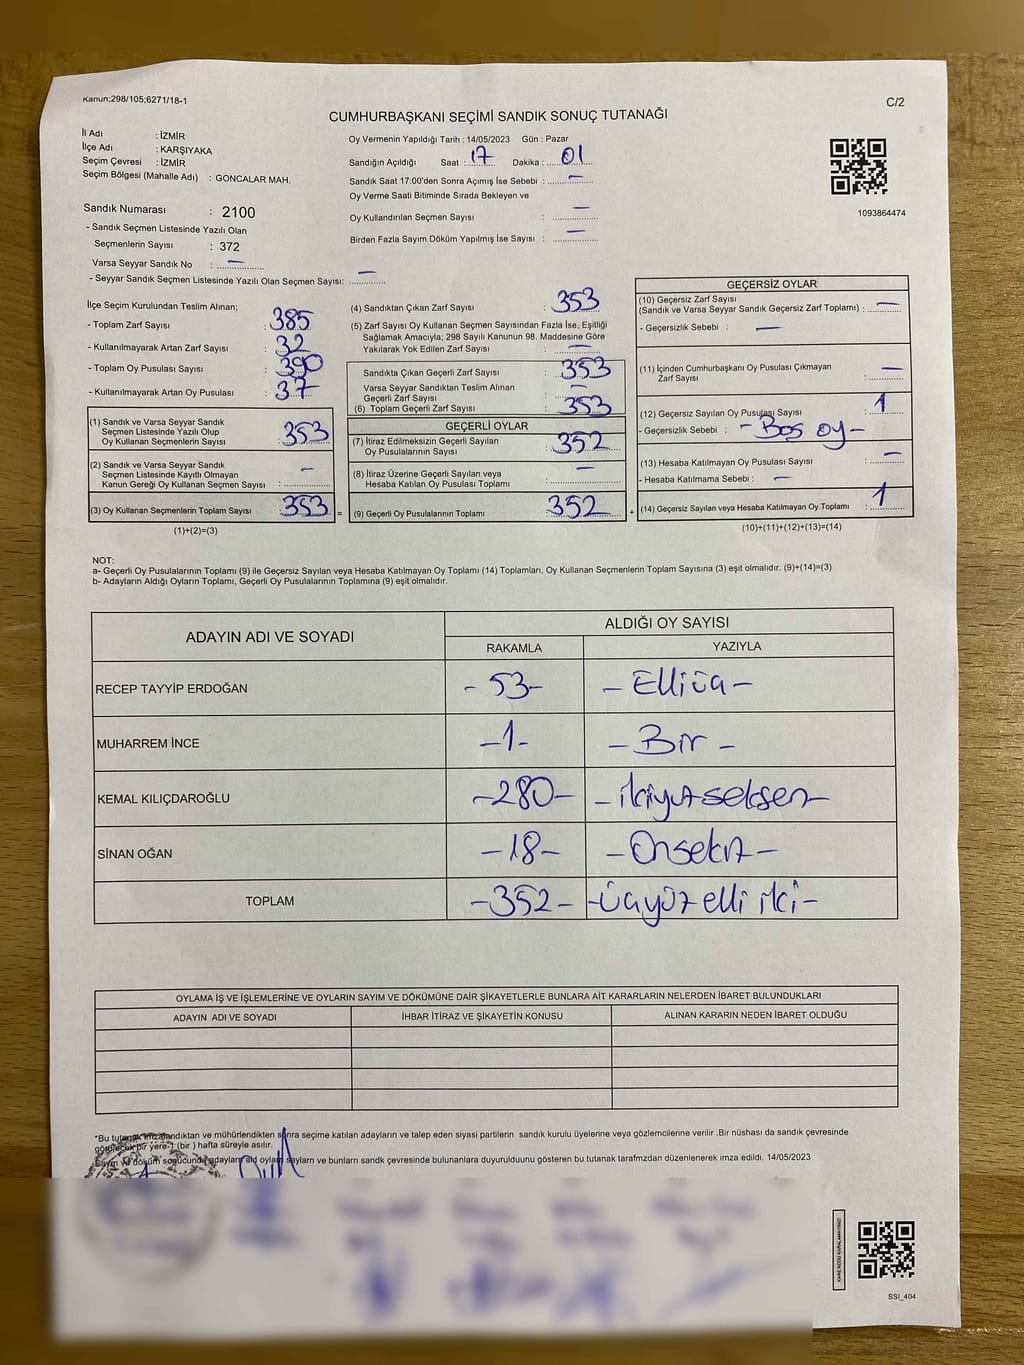 Kanun;298/105;6271/18-1
C/2
CUMHURBAŞKANI SEÇİMİ SANDIK SONUÇ TUTANAĞI
İl Adı : İZMİR
İlçe Adı : KARŞIYAKA
Seçim Çevresi : İZMİR
Seçim Bölgesi (Mahalle Adı) : GONCALAR MAH.
Sandık Numarası : 2100
- Sandık Seçmen Listesinde Yazılı Olan
Seçmenlerin Sayısı : 372
Varsa Seyyar Sandık No : —
- Seyyar Sandık Seçmen Listesinde Yazılı Olan Seçmen Sayısı: —
Oy Vermenin Yapıldığı Tarih : 14/05/2023 Gün : Pazar
Sandığın Açıldığı Saat : 17 Dakika : 01
Sandık Saat 17:00'den Sonra Açımış İse Sebebi : —
Oy Verme Saati Bitiminde Sırada Bekleyen ve
Oy Kullandırılan Seçmen Sayısı : —
Birden Fazla Sayım Döküm Yapılmış İse Sayısı : —
1093864474
İlçe Seçim Kurulundan Teslim Alınan;
- Toplam Zarf Sayısı : 385
- Kullanılmayarak Artan Zarf Sayısı : 32
- Toplam Oy Pusulası Sayısı : 390
- Kullanılmayarak Artan Oy Pusulası : 37
(1) Sandık ve Varsa Seyyar Sandık
Seçmen Listesinde Yazılı Olup
Oy Kullanan Seçmenlerin Sayısı : 353
(2) Sandık ve Varsa Seyyar Sandık
Seçmen Listesinde Kayıtlı Olmayan
Kanun Gereği Oy Kullanan Seçmen Sayısı : —
(3) Oy Kullanan Seçmenlerin Toplam Sayısı : 353 =
(1)+(2)=(3)
(4) Sandıktan Çıkan Zarf Sayısı : 353
(5) Zarf Sayısı Oy Kullanan Seçmen Sayısından Fazla İse, Eşitliği
Sağlamak Amacıyla; 298 Sayılı Kanunun 98. Maddesine Göre
Yakılarak Yok Edilen Zarf Sayısı : —
Sandıkta Çıkan Geçerli Zarf Sayısı : 353
Varsa Seyyar Sandıktan Teslim Alınan
Geçerli Zarf Sayısı : —
(6) Toplam Geçerli Zarf Sayısı : 353
GEÇERLİ OYLAR
(7) İtiraz Edilmeksizin Geçerli Sayılan
Oy Pusulalarının Sayısı : 352
(8) İtiraz Üzerine Geçerli Sayılan veya
Hesaba Katılan Oy Pusulası Sayısı : —
(9) Geçerli Oy Pusulalarının Toplamı : 352 +
GEÇERSİZ OYLAR
(10) Geçersiz Zarf Sayısı
(Sandık ve Varsa Seyyar Sandık Geçersiz Zarf Toplamı) : —
- Geçersizlik Sebebi : —
(11) İçinden Cumhurbaşkanı Oy Pusulası Çıkmayan
Zarf Sayısı : —
(12) Geçersiz Sayılan Oy Pusulası Sayısı : 1
- Geçersizlik Sebebi : - Boş oy -
(13) Hesaba Katılmayan Oy Pusulası Sayısı : —
- Hesaba Katılmama Sebebi : —
(14) Geçersiz Sayılan veya Hesaba Katılmayan Oy Toplamı : 1
(10)+(11)+(12)+(13)=(14)
NOT:
a- Geçerli Oy Pusulalarının Toplamı (9) ile Geçersiz Sayılan veya Hesaba Katılmayan Oy Toplamı (14) Toplamları, Oy Kullanan Seçmenlerin Toplam Sayısına (3) eşit olmalıdır. (9)+(14)=(3)
b- Adayların Aldığı Oyların Toplamı, Geçerli Oy Pusulalarının Toplamına (9) eşit olmalıdır.
ADAYIN ADI VE SOYADI ALDIĞI OY SAYISI
RAKAMLA YAZIYLA
RECEP TAYYİP ERDOĞAN - 53 - - Elliüç -
MUHARREM İNCE - 1 - - Bir -
KEMAL KILIÇDAROĞLU - 280 - - ikiyüzseksen -
SİNAN OĞAN - 18 - - Onsekiz -
TOPLAM - 352 - - Üçyüz elli iki -
OYLAMA İŞ VE İŞLEMLERİNE VE OYLARIN SAYIM VE DÖKÜMÜNE DAİR ŞİKAYETLERLE BUNLARA AİT KARARLARIN NELERDEN İBARET BULUNDUKLARI
ADAYIN ADI VE SOYADI İHBAR İTİRAZ VE ŞİKAYETİN KONUSU ALINAN KARARIN NEDEN İBARET OLDUĞU
*Bu tutanak imzalandıktan ve mühürlendikten sonra seçime katılan adayların ve talep eden siyasi partilerin sandık kurulu üyelerine veya gözlemcilerine verilir .Bir nüshası da sandık çevresinde
görülecek bir yere 1 (bir ) hafta süreyle asılır.
Sayım ve döküm sonucunda adayların aldığı oyların sayıları ve bunların sandık çevresinde bulunanlara duyurulduunu gösteren bu tutanak tarafımzdan düzenlenerek imza edildi. 14/05/2023
SSI_404